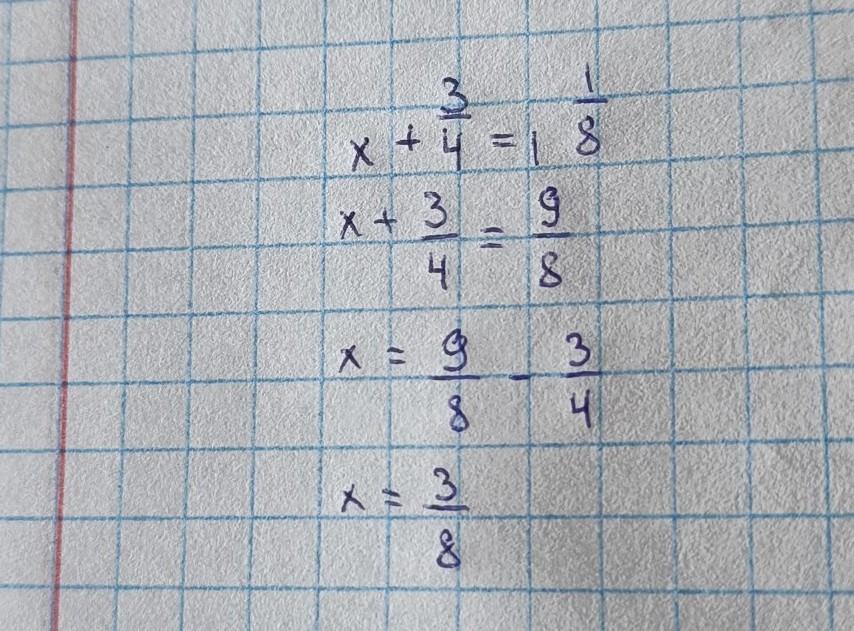 x + 3/4 = 1 1/8
x + 3/4 = 9/8
x = 9/8 - 3/4
x = 3/8